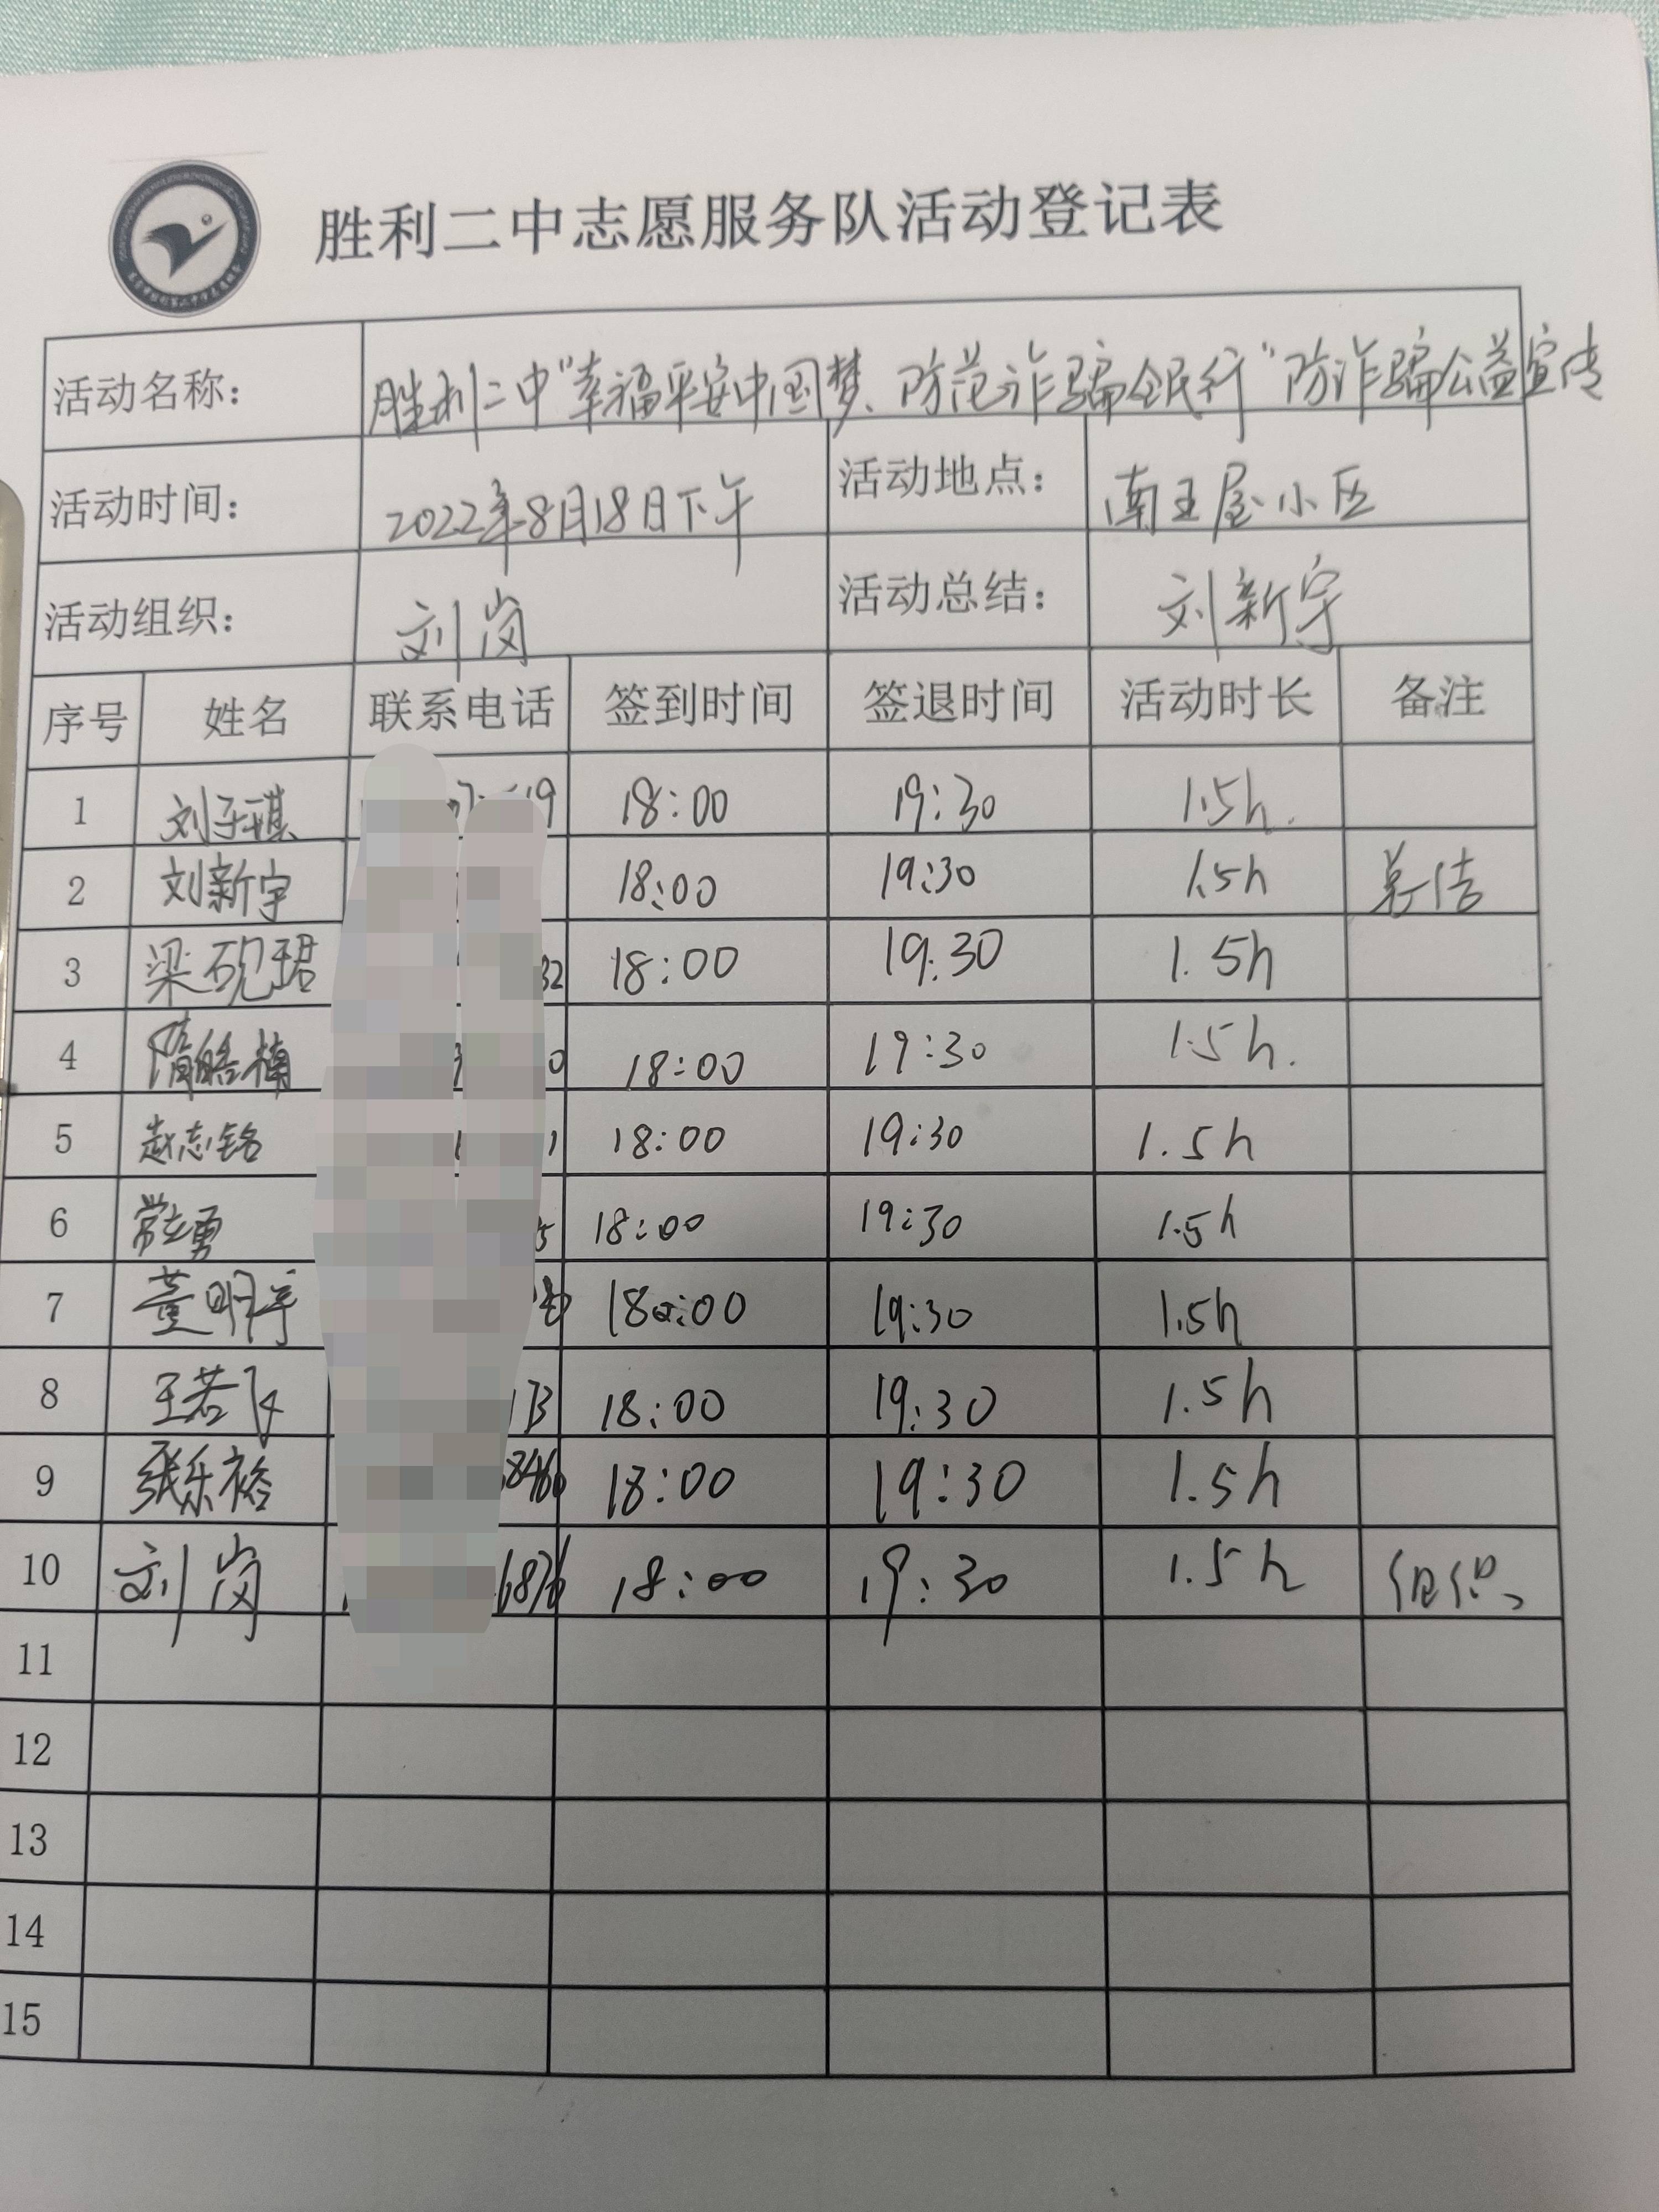 胜利二中志愿服务队活动登记表
活动名称： 胜利二中"幸福平安中国梦、防范诈骗全民行"防诈骗公益宣传
活动时间： 2022年8月18日下午 活动地点： 南王屋小区
活动组织： 刘岗 活动总结： 刘新宇
序号 姓名 联系电话 签到时间 签退时间 活动时长 备注
1 刘子琪 19 18:00 19:30 1.5h.
2 刘新宇 18:00 19:30 1.5h 总结
3 梁砚珺 32 18:00 19:30 1.5h
4 隋皓楠 0 18:00 19:30 1.5h.
5 赵志铭 1 18:00 19:30 1.5h
6 常志勇 5 18:00 19:30 1.5h
7 董明宇 18:00 19:30 1.5h
8 王若飞 173 18:00 19:30 1.5h
9 张乐裕 8460 18:00 19:30 1.5h
10 刘岗 6876 18:00 19:30 1.5h 组织
11
12
13
14
15